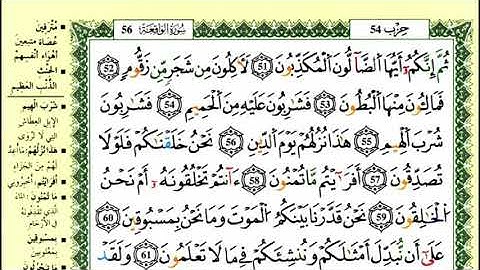 حِزْب 54
سُورَةُ الوَاقِعَة 56
ثُمَّ إِنَّكُمْ أَيُّهَا ٱلضَّآلُّونَ ٱلْمُكَذِّبُونَ 51 لَأٓكِلُونَ مِن شَجَرٍ مِّن زَقُّومٍ 52
فَمَالِـُٔونَ مِنْهَا ٱلْبُطُونَ 53 فَشَٰرِبُونَ عَلَيْهِ مِنَ ٱلْحَمِيمِ 54 فَشَٰرِبُونَ
شُرْبَ ٱلْهِيمِ 55 هَٰذَا نُزُلُهُمْ يَوْمَ ٱلدِّينِ 56 نَحْنُ خَلَقْنَٰكُمْ فَلَوْلَا
تُصَدِّقُونَ 57 أَفَرَءَيْتُم مَّا تُمْنُونَ 58 ءَأَنتُمْ تَخْلُقُونَهُۥٓ أَمْ نَحْنُ
ٱلْخَٰلِقُونَ 59 نَحْنُ قَدَّرْنَا بَيْنَكُمُ ٱلْمَوْتَ وَمَا نَحْنُ بِمَسْبُوقِينَ 60
عَلَىٰٓ أَن نُّبَدِّلَ أَمْثَٰلَكُمْ وَنُنشِئَكُمْ فِى مَا لَا تَعْلَمُونَ 61 وَلَقَدْ
مُتْرَفِينَ
عُصَاةً مُتَّبِعِينَ
أَهْوَاءَ أَنْفُسِهِمْ
الحِنْث
الذَّنْبِ العَظِيم
شُرْبَ الهِيم
الإبل العِطاش
التي لا تَرْوَى
هَذَا نُزُلُهُمْ: مَا أُعِدَّ
لَهُمْ مِنَ الجَزَاءِ
أَفَرَأَيْتُمْ: أَخْبِرُونِي
مَا تُمْنُونَ: الماء
الذي تَقْذِفُونَهُ
في الأرحام
بِمَسْبُوقِينَ
بِمَغْلُوبِينَ